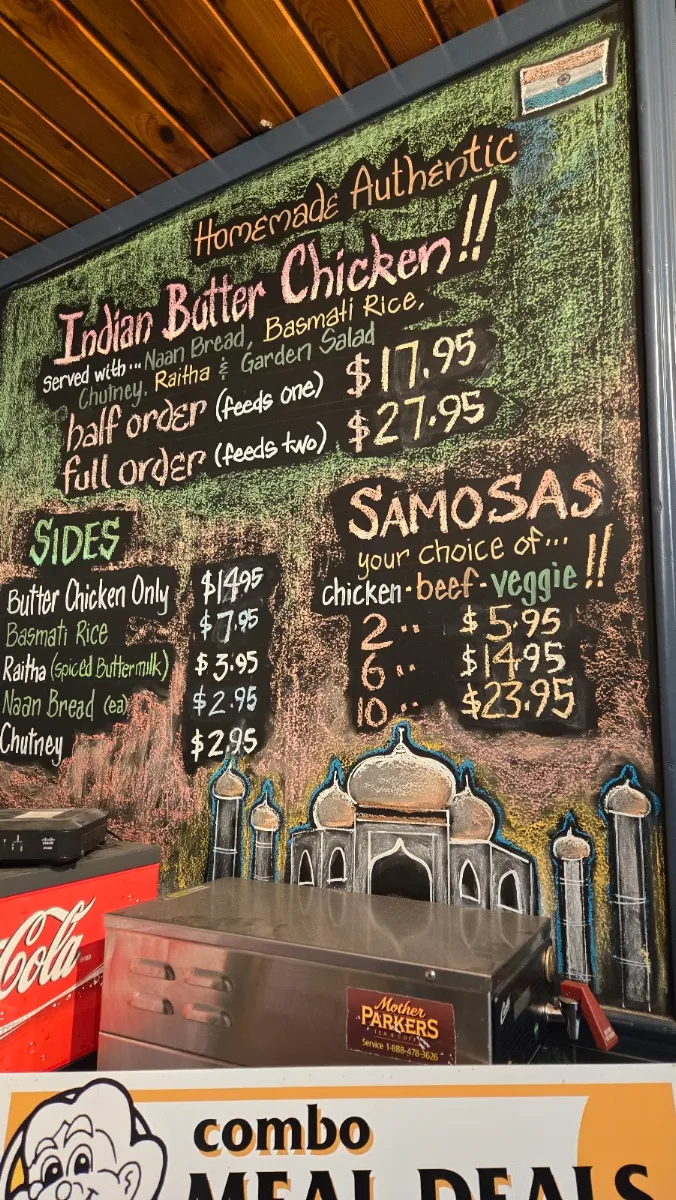 Homemade Authentic
Indian Butter Chicken!!
served with... Naan Bread, Basmati Rice,
Chutney, Raitha & Garden Salad
half order (feeds one) $17.95
full order (feeds two) $27.95
SIDES
Butter Chicken Only $14.95
Basmati Rice $7.95
Raitha (spiced Buttermilk) $3.95
Naan Bread (ea) $2.95
Chutney $2.95
SAMOSAS
your choice of...
chicken - beef - veggie!!
2 .. $5.95
6 .. $14.95
10 .. $23.95
Cola
Mother
PARKERS
TEA & COFFEE
Service 1-888-478-3626
combo
MEAL DEALS